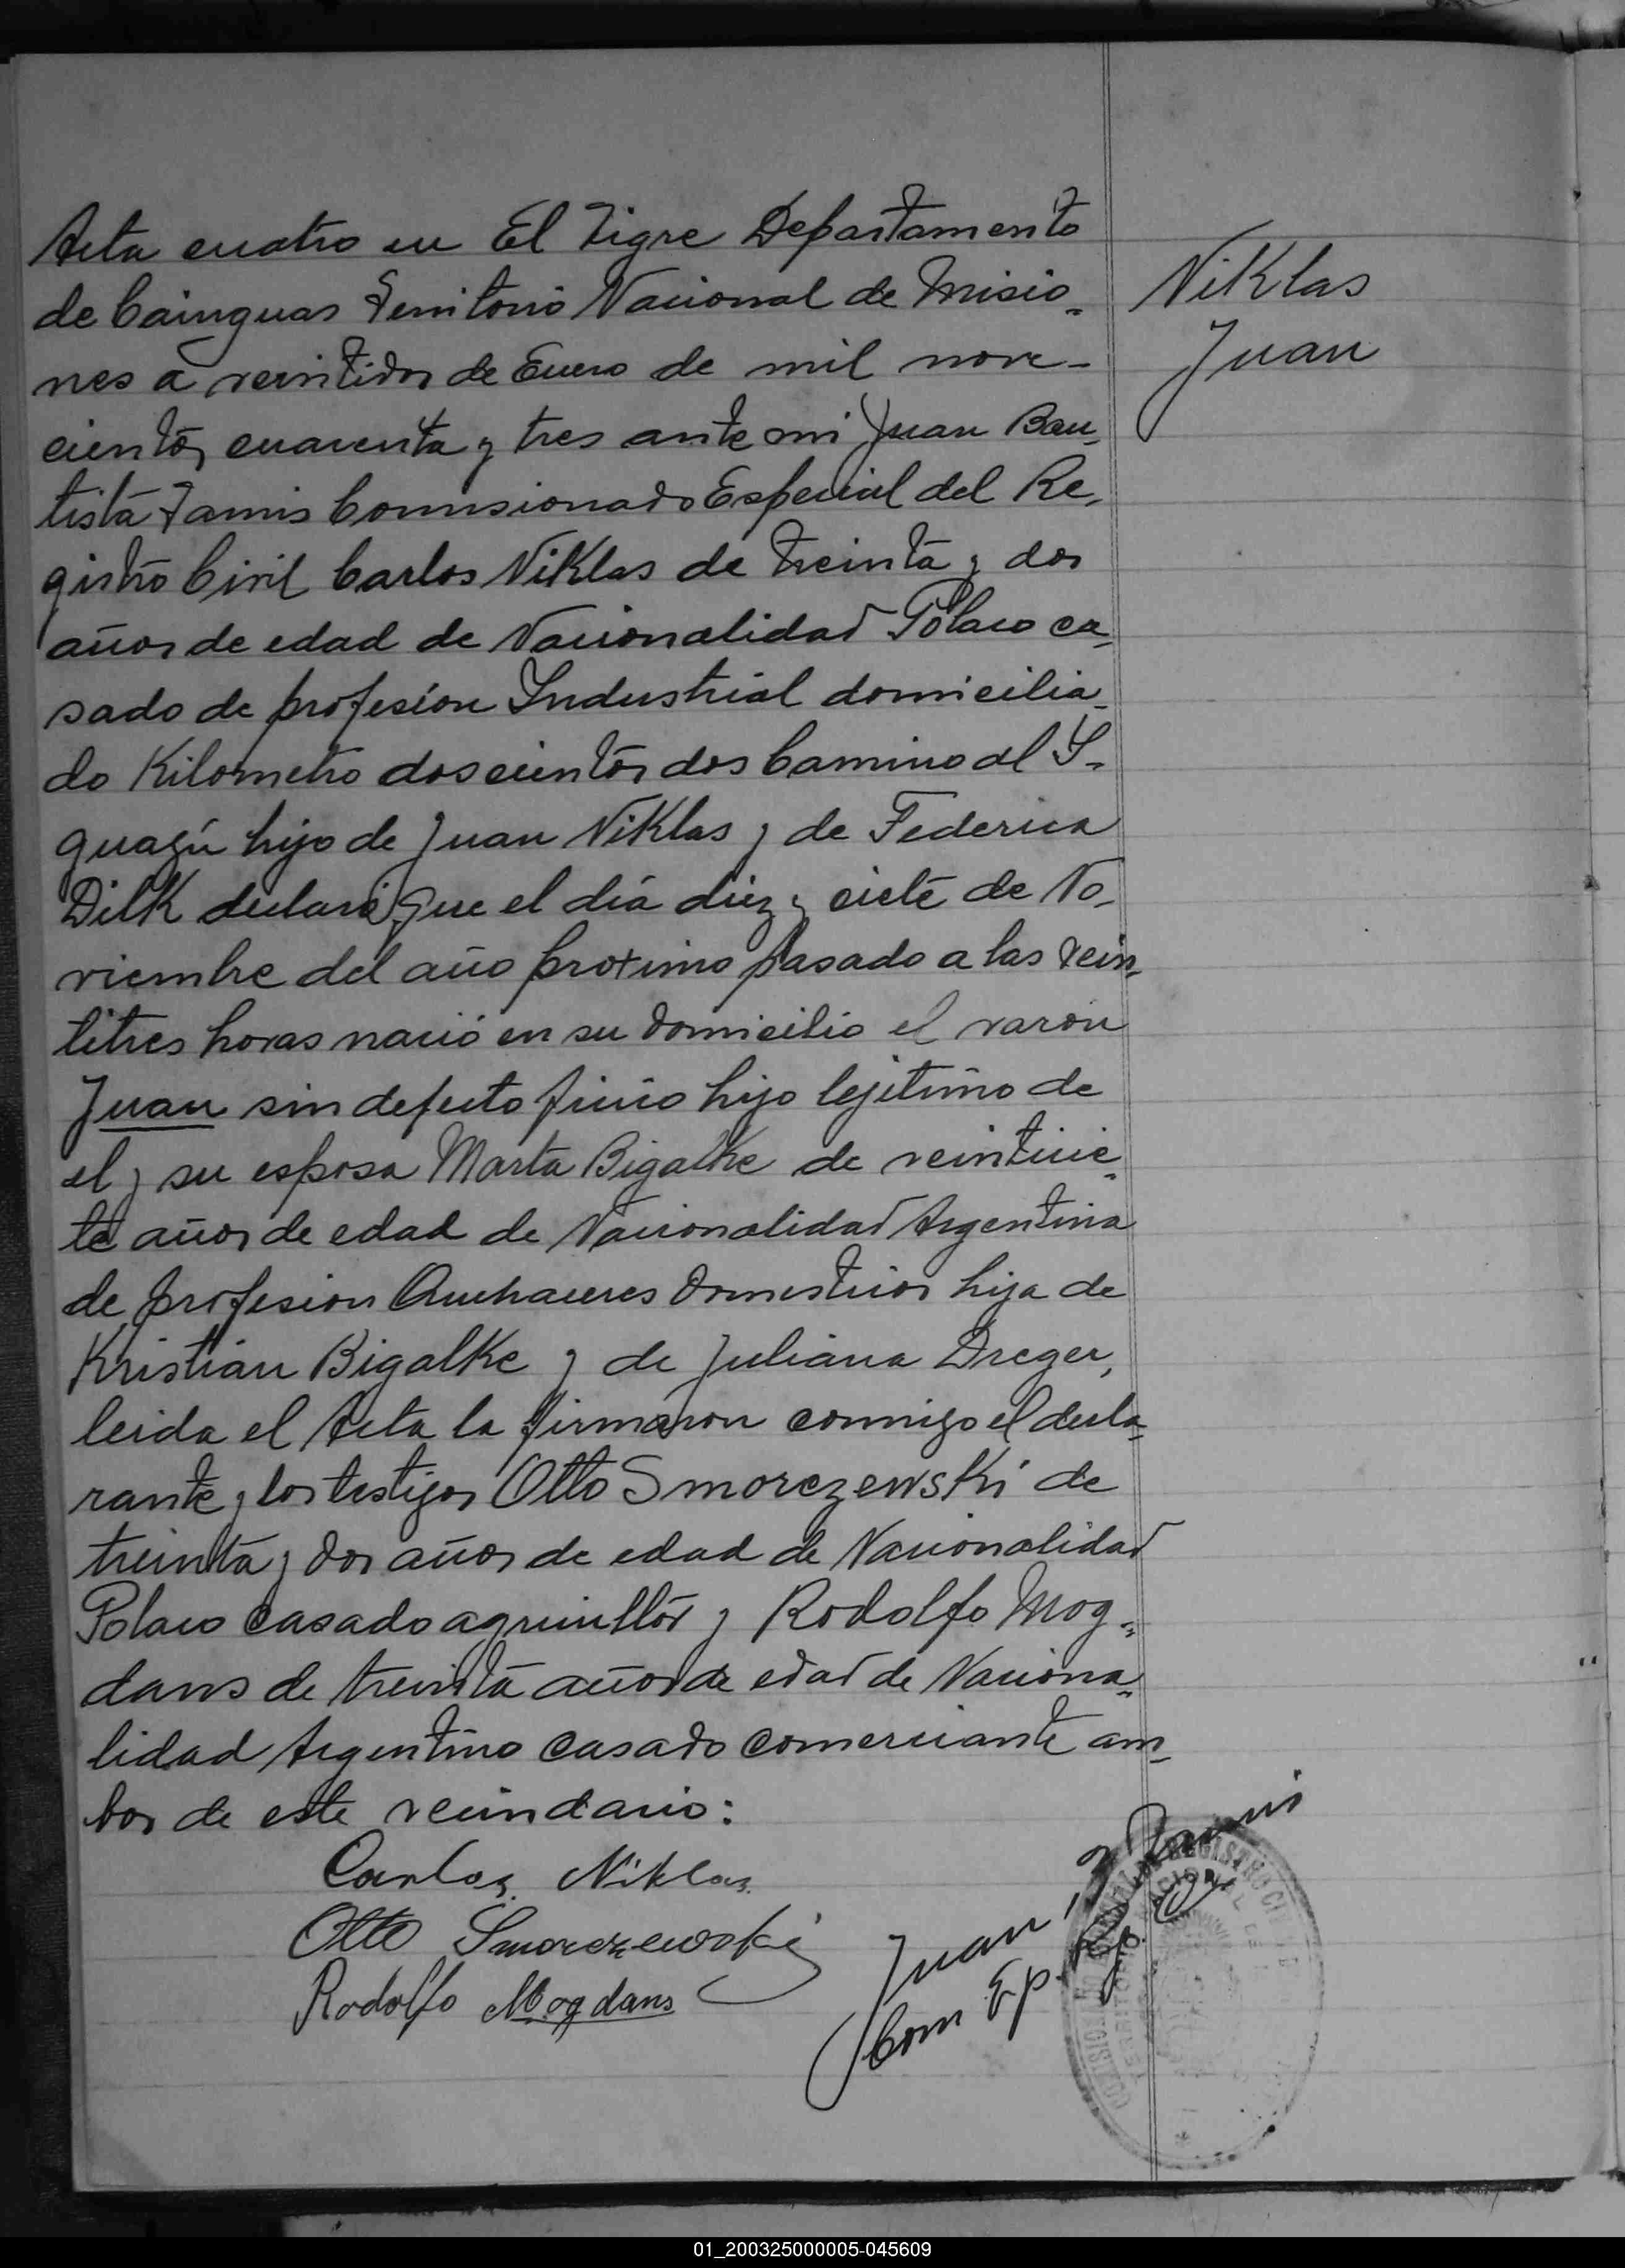 Acta cuatro en El Tigre Departamento
de Cainguas Territorio Nacional de Misio-
nes a veintidos de Enero de mil nove-
cientos cuarenta y tres ante mi Juan Bau-
tista Tamis Comisionado Especial del Re-
gistro Civil Carlos Niklas de treinta y dos
años de edad de Nacionalidad Polaco ca-
sado de profesion Industrial domicilia-
do Kilometro doscientos dos Camino al I-
guazú hijo de Juan Niklas y de Federica
Dilk declaró que el día diez y siete de No-
viembre del año proximo pasado a las vein-
titres horas nació en su domicilio el varon
Juan sin defecto fisico hijo lejitimo de
el y su esposa Marta Bigalke de veintisie-
te años de edad de Nacionalidad Argentina
de profesion Quehaceres domesticos hija de
Kristian Bigalke y de Juliana Dreger,
leida el Acta la firmaron conmigo el decla-
rante y los testigos Otto Smorczewski de
treinta y dos años de edad de Nacionalidad
Polaco casado agricultor y Rodolfo Mog-
dans de treinta años de edad de Naciona-
lidad Argentino casado comerciante am-
bos de este vecindario:
Carlos Niklas
Otto Smorczewski
Rodolfo Mogdans
Juan B Tamis
Com Esp.
REGISTRO CIVIL
Niklas
Juan
01_200325000005-045609